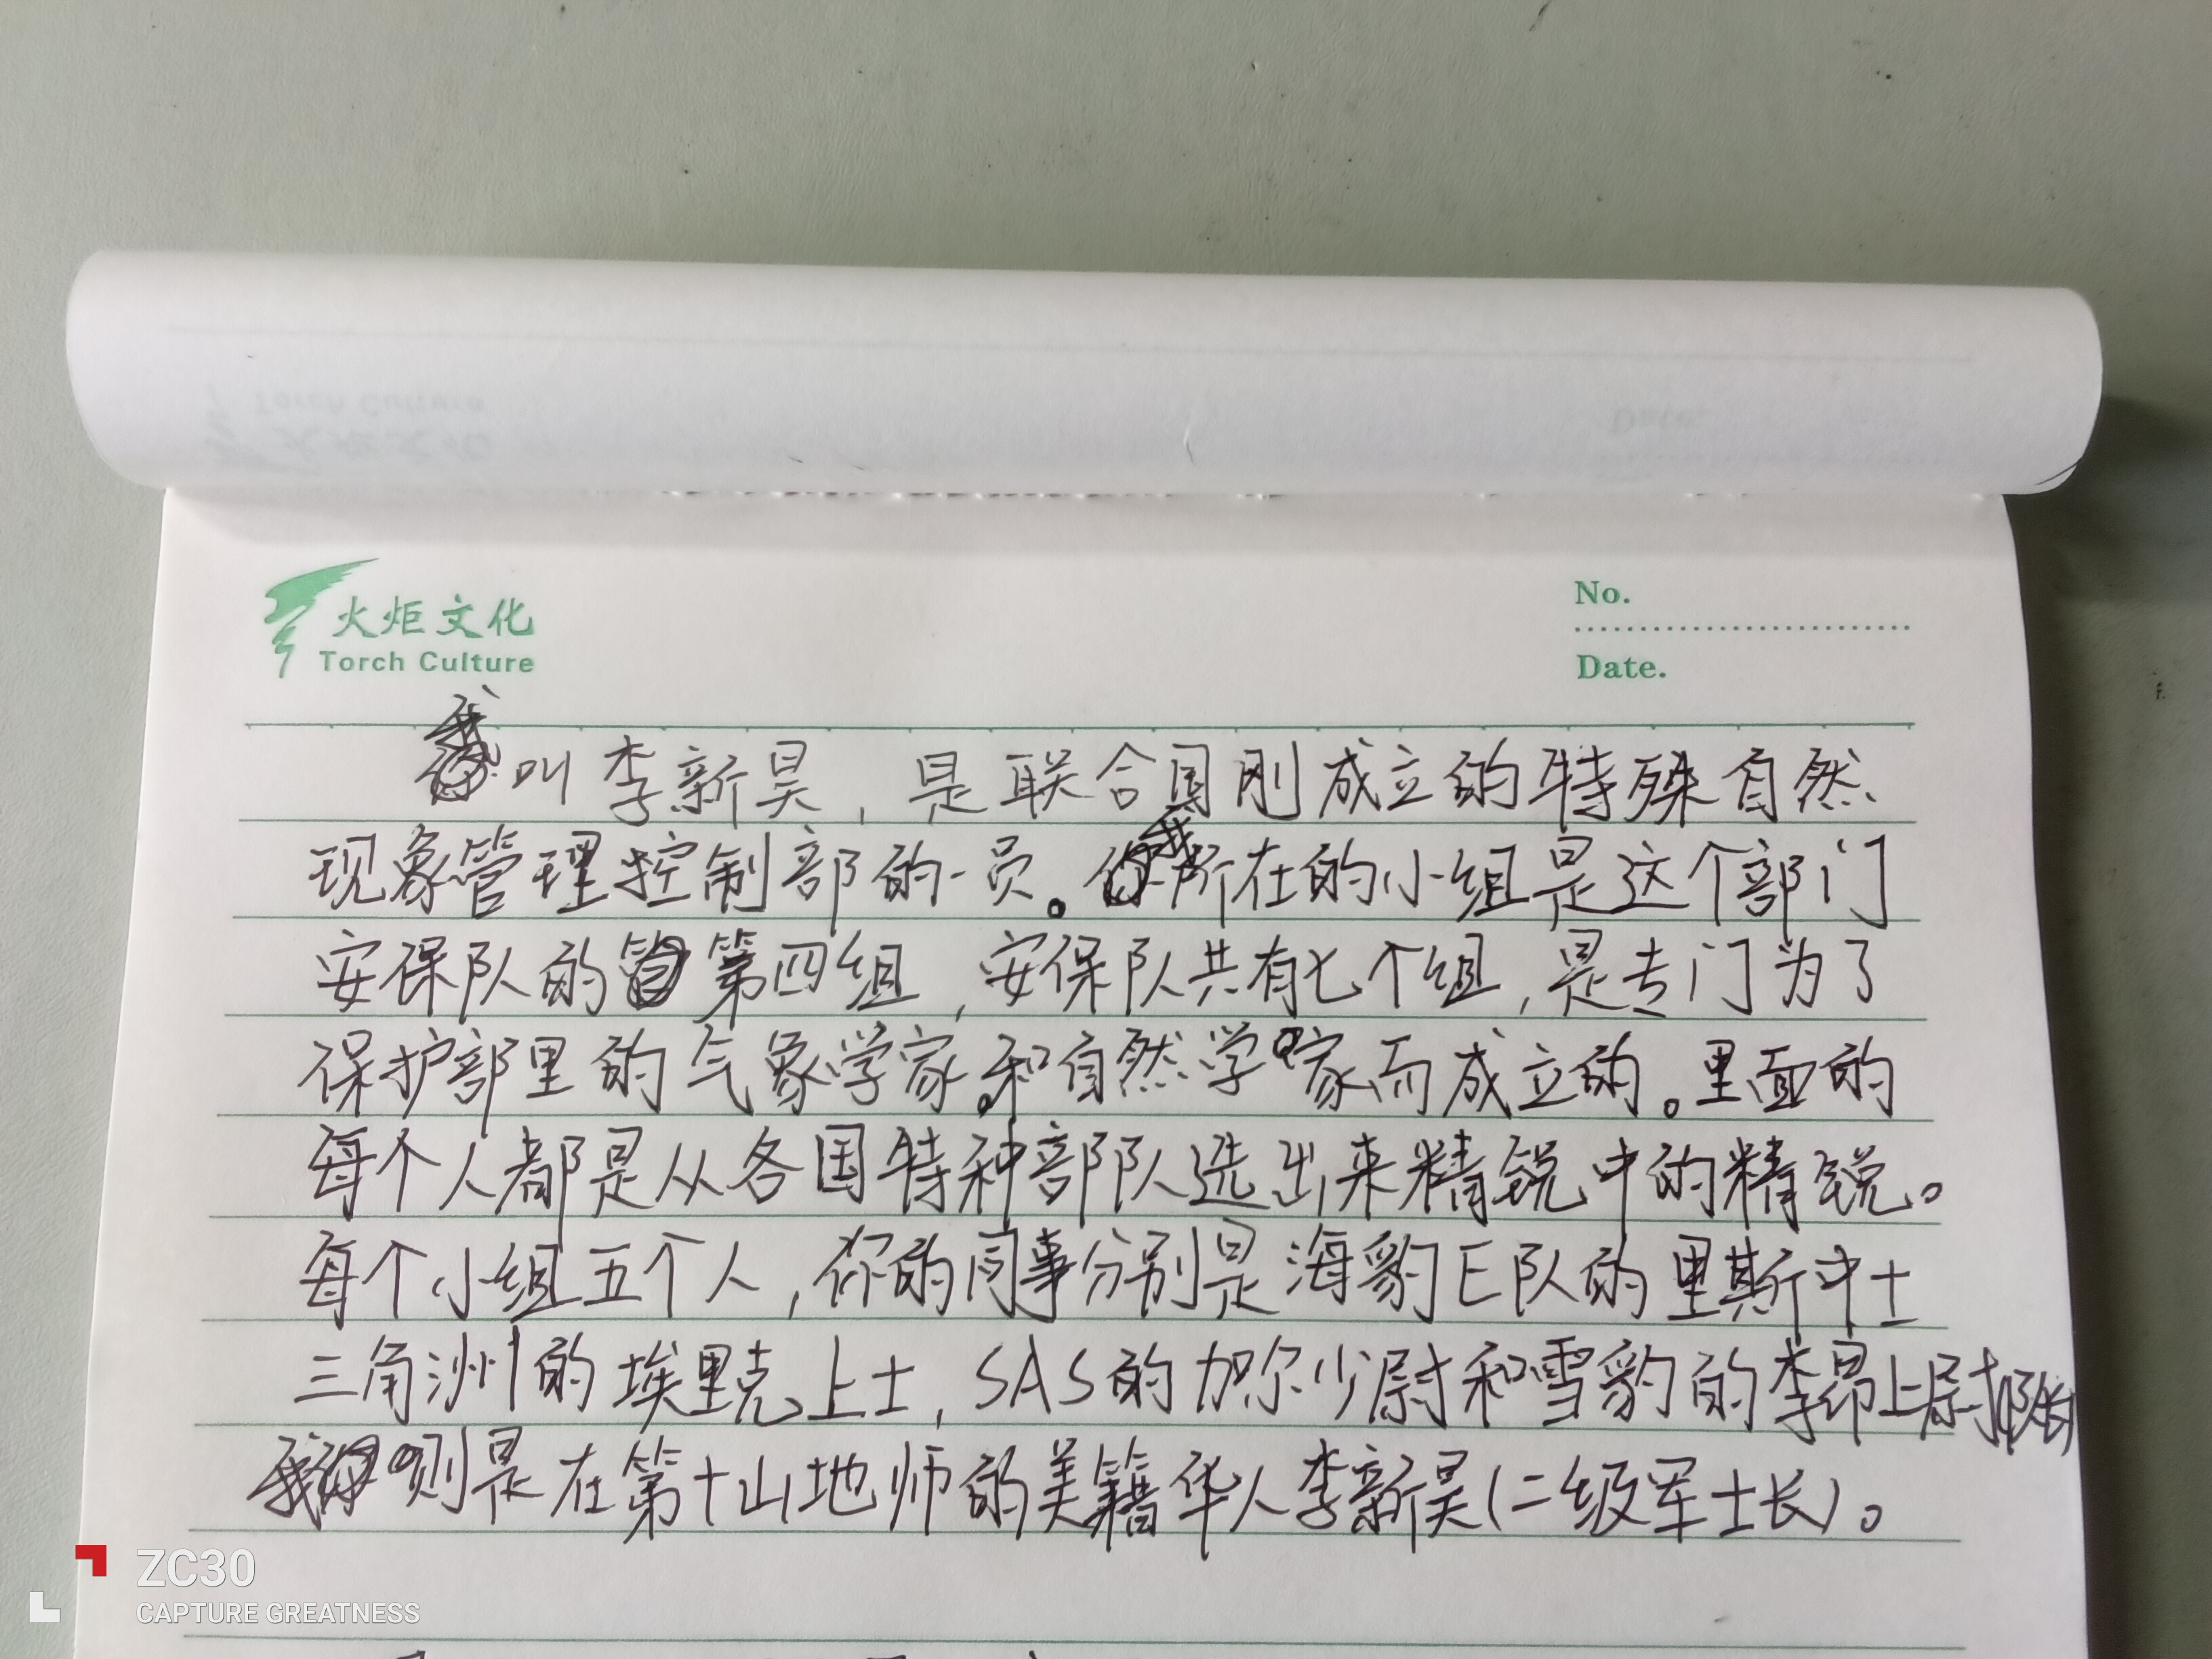 火炬文化
Torch Culture
No.
Date.
我叫李新昊，是联合国刚成立的特殊自然
现象管理控制部的一员。我所在的小组是这个部门
安保队的第四组，安保队共有七个组，是专门为了
保护部里的气象学家和自然学家而成立的。里面的
每个人都是从各国特种部队选出来精锐中的精锐。
每个小组五个人，你的同事分别是海豹E队的里斯中士
三角洲的埃里克上士，SAS的加尔少尉和雪豹的李昂上尉队长
我则是在第十山地师的美籍华人李新昊(二级军士长)。
ZC30
CAPTURE GREATNESS